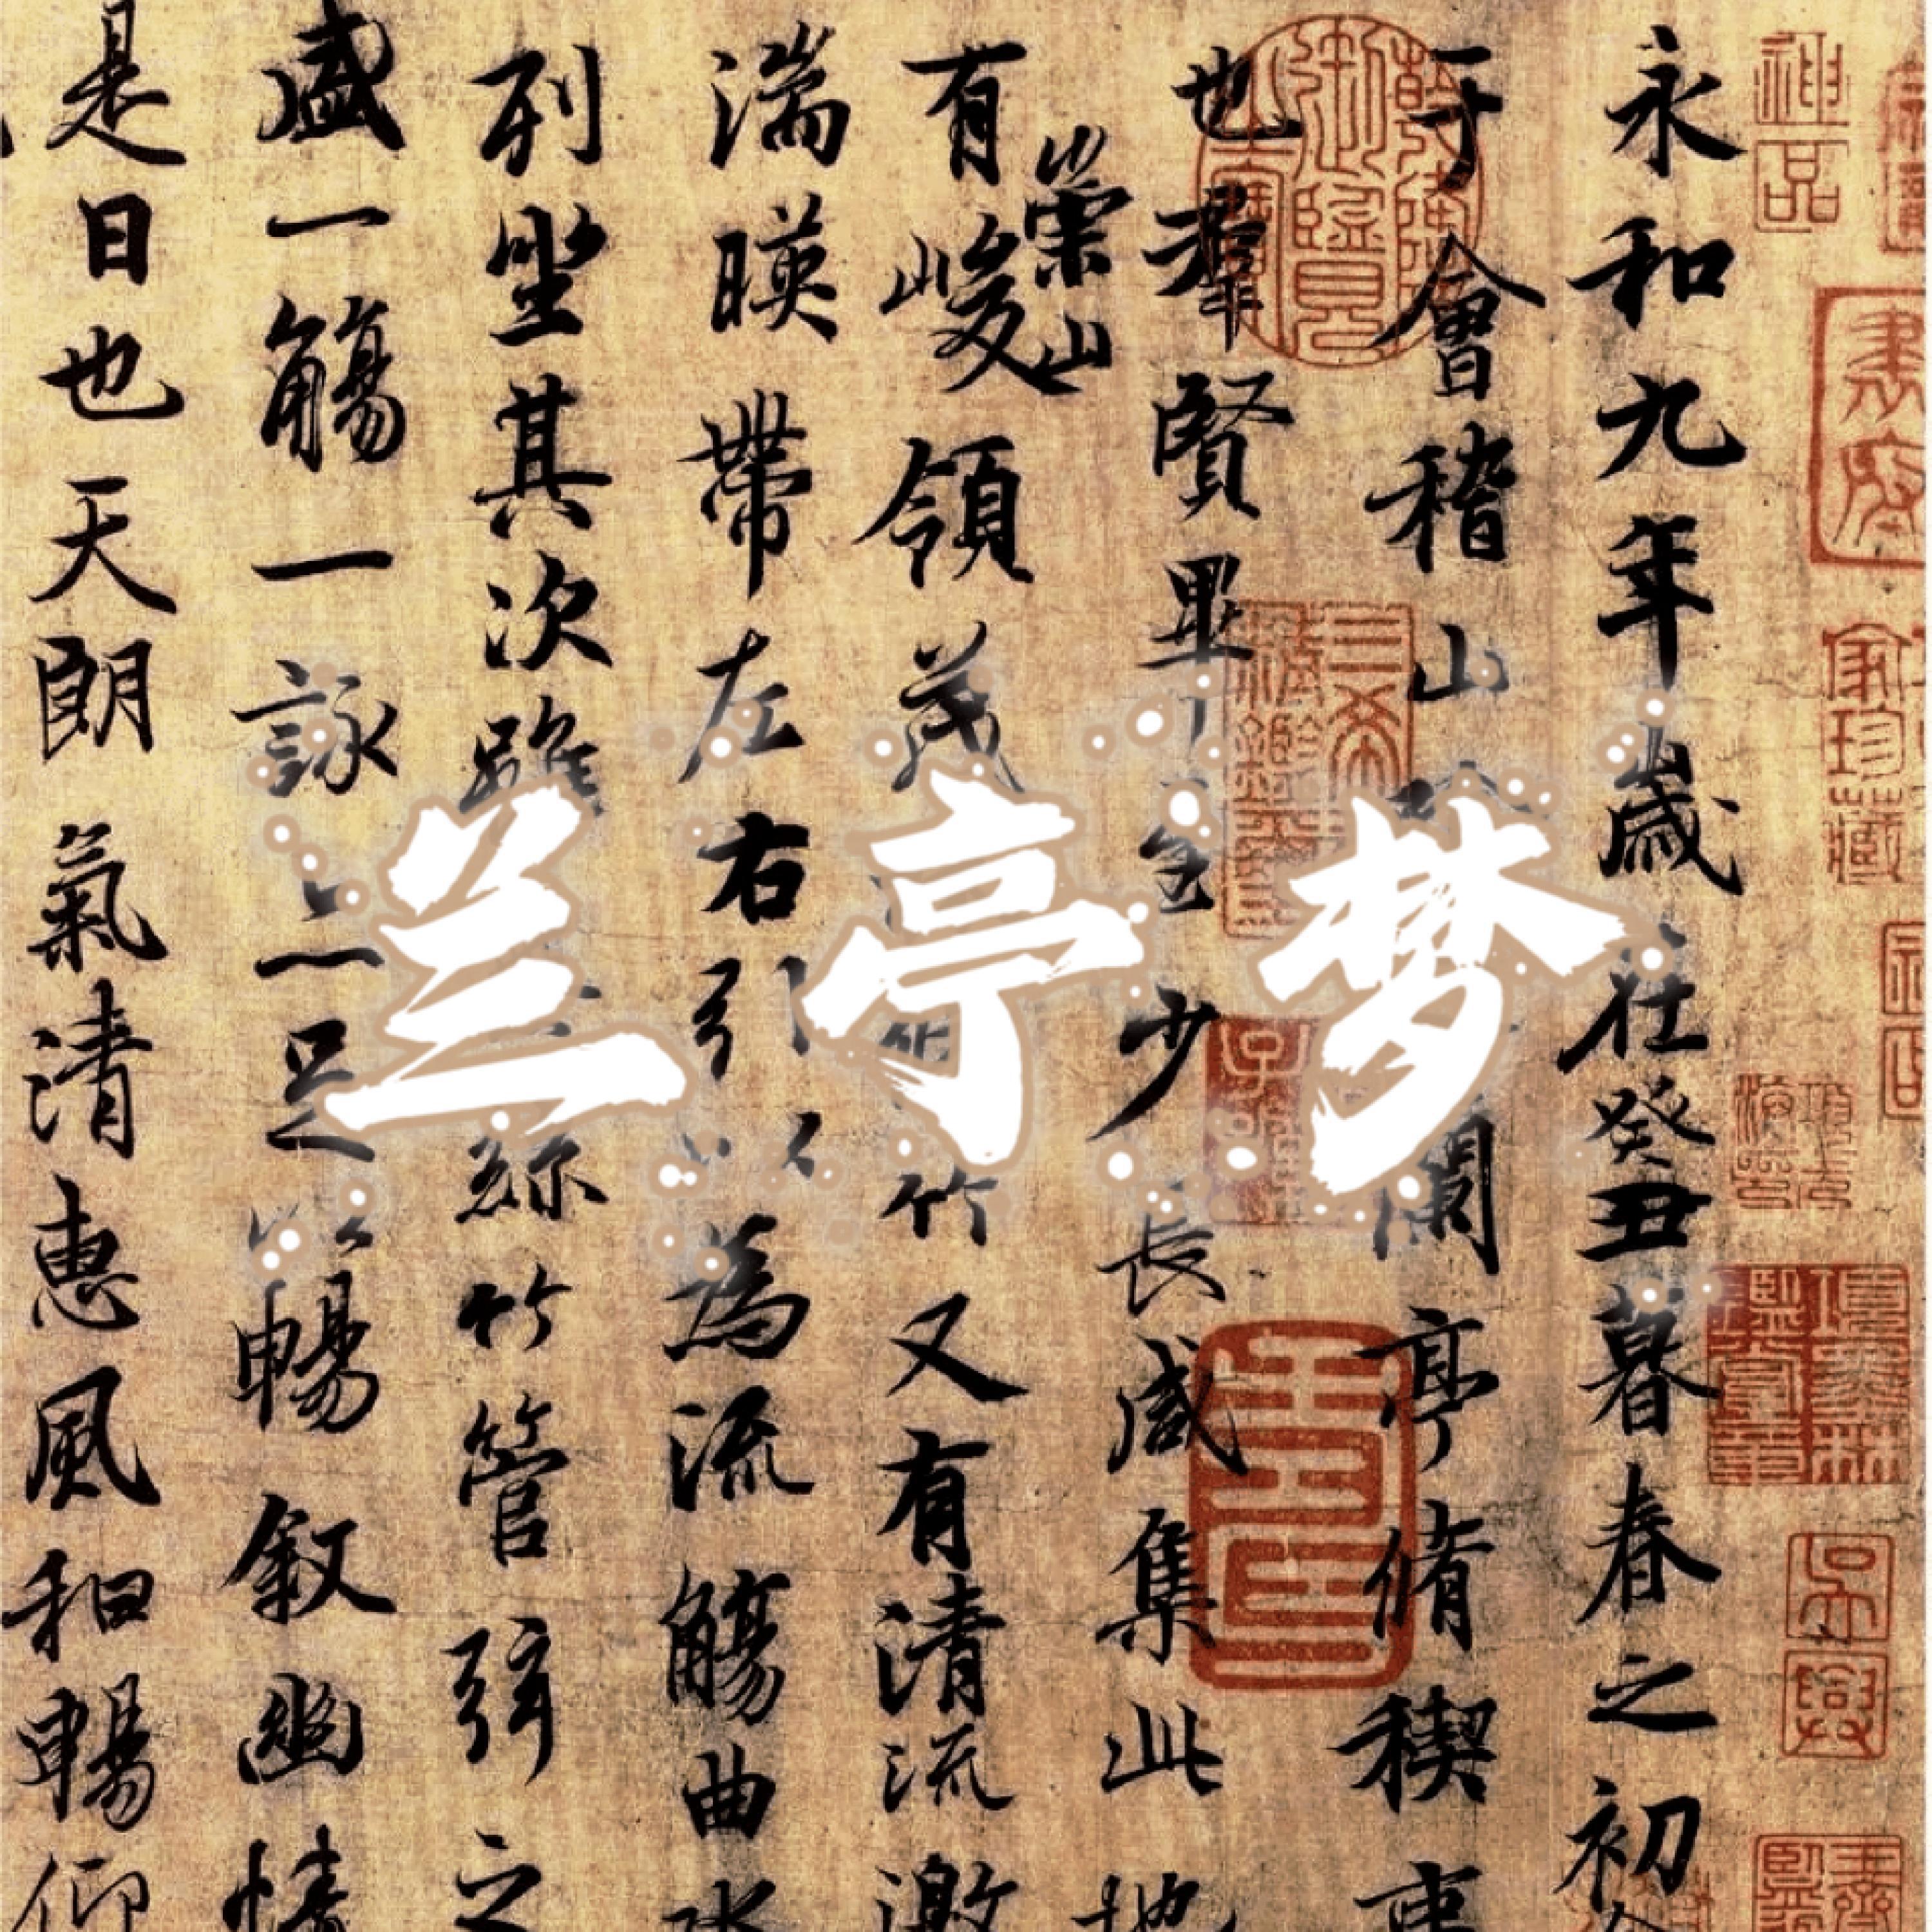 兰亭梦
神品
永和九年歲在癸丑暮春之初
于會稽山蘭亭脩稧事
也羣賢畢至少長咸集此地
崇山
有峻領茂竹又有清流激
湍暎帶左右引以為流觴曲水
列坐其次雖絲竹管弦之
盛一觴一詠足以暢叙幽情
是日也天朗氣清惠風和暢仰